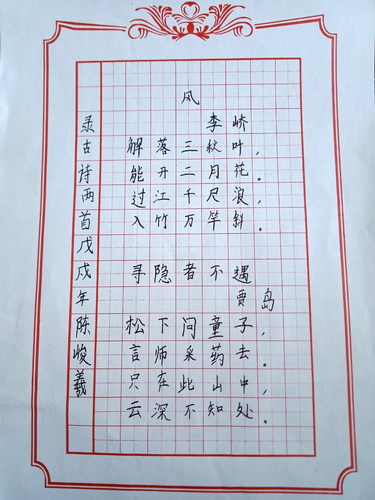 风
李峤
解落三秋叶，
能开二月花。
过江千尺浪，
入竹万竿斜。
寻隐者不遇
贾岛
松下问童子，
言师采药去。
只在此山中，
云深不知处。
录古诗两首戊戌年陈峻羲